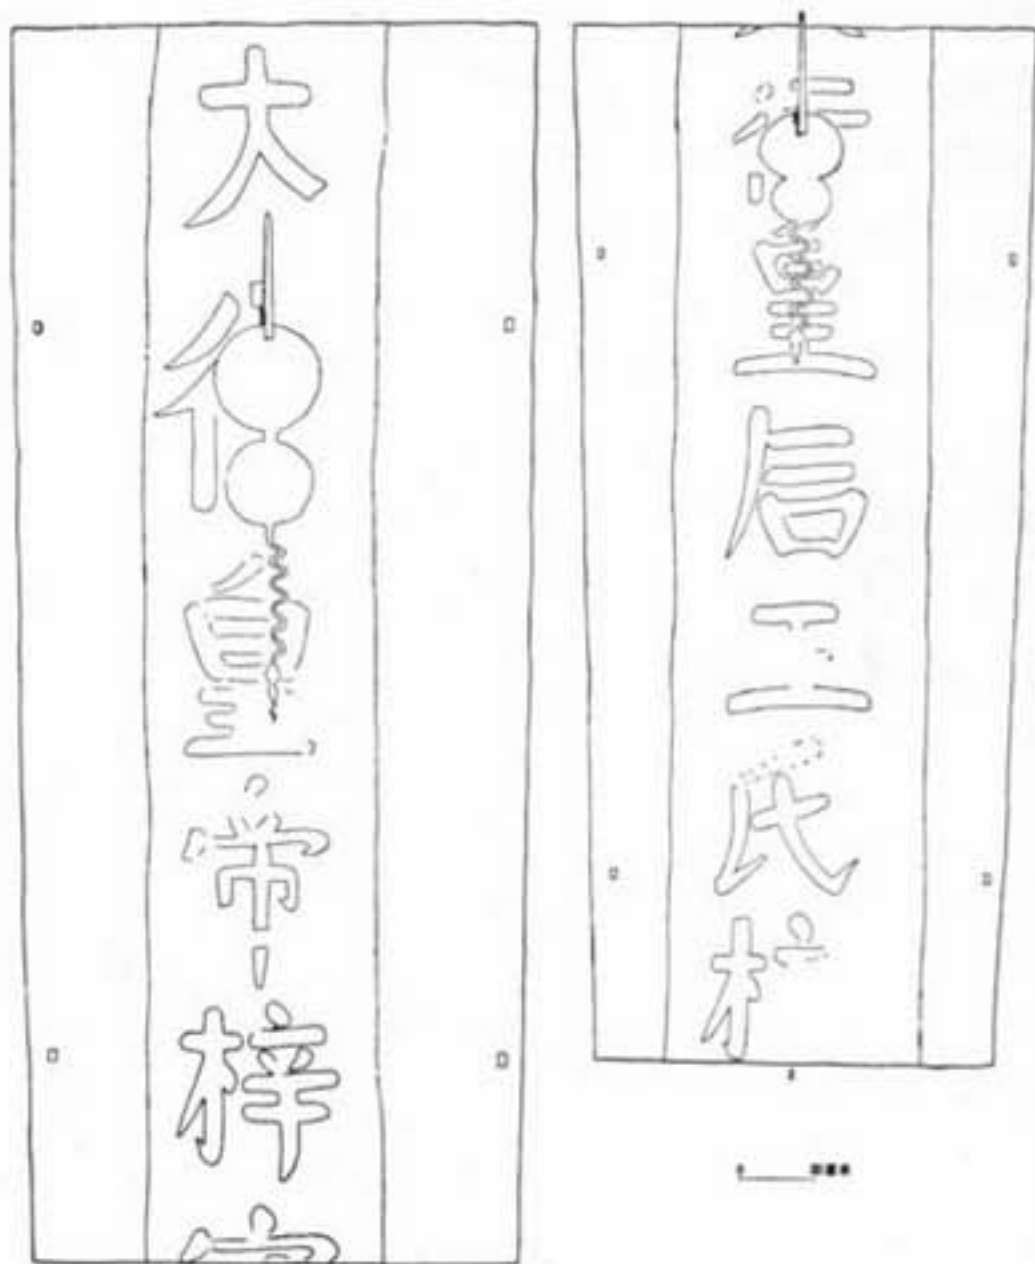 大行皇帝梓
行皇后王氏梓